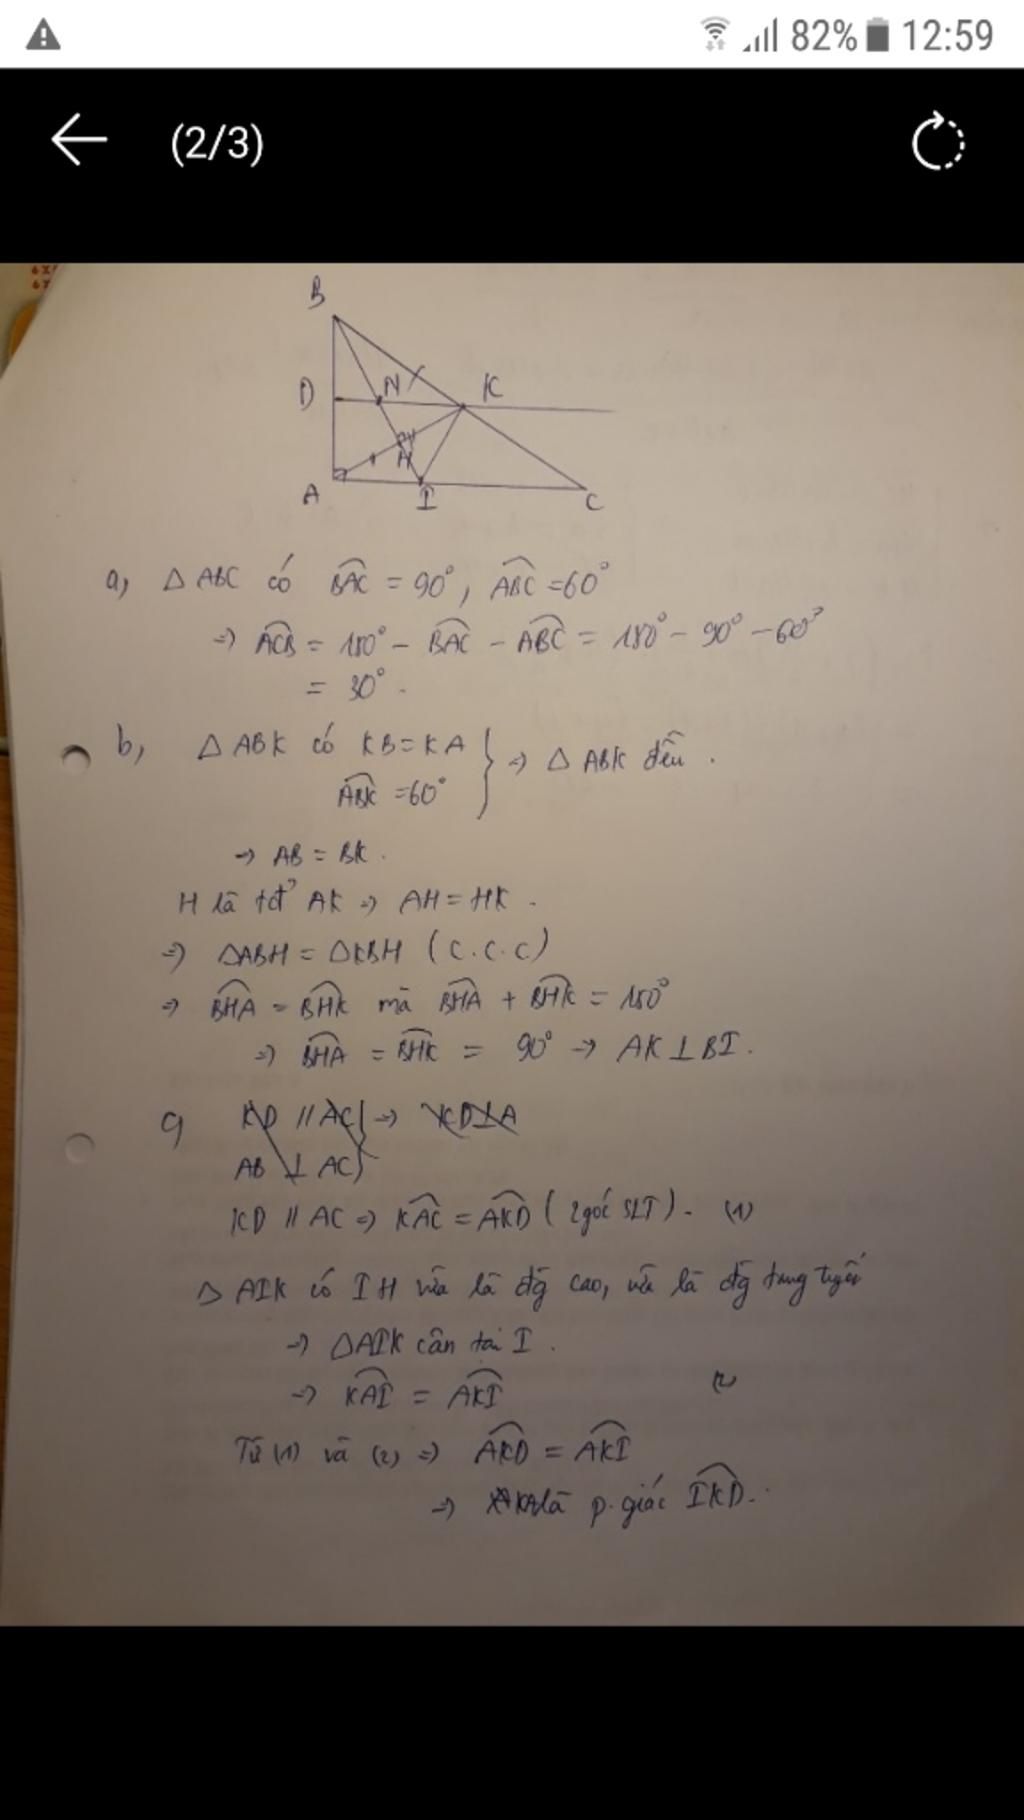 82% 12:59
(2/3)
B
D N K
H
A I C
a, △ ABC có BAC = 90°, ABC = 60°
=> ACB = 180° - BAC - ABC = 180° - 90° - 60°
= 30°.
b, △ ABK có KB = KA } => △ ABK đều.
ABK = 60°
=> AB = BK.
H là tđ AK => AH = HK.
=> △ABH = △KBH (c.c.c)
=> BHA = BHK mà BHA + BHK = 180°
=> BHA = BHK = 90° => AK ⊥ BI.
c, KD // AC } => KD ⊥ A
AB ⊥ AC
KD // AC => KAC = AKD (2 góc SLT). (1)
△ AIK có IH vừa là đg cao, vừa là đg trung tuyến
=> △AIK cân tại I.
=> KAI = AKI (2)
Từ (1) và (2) => AKD = AKI
=> KA là p.giác IKD.